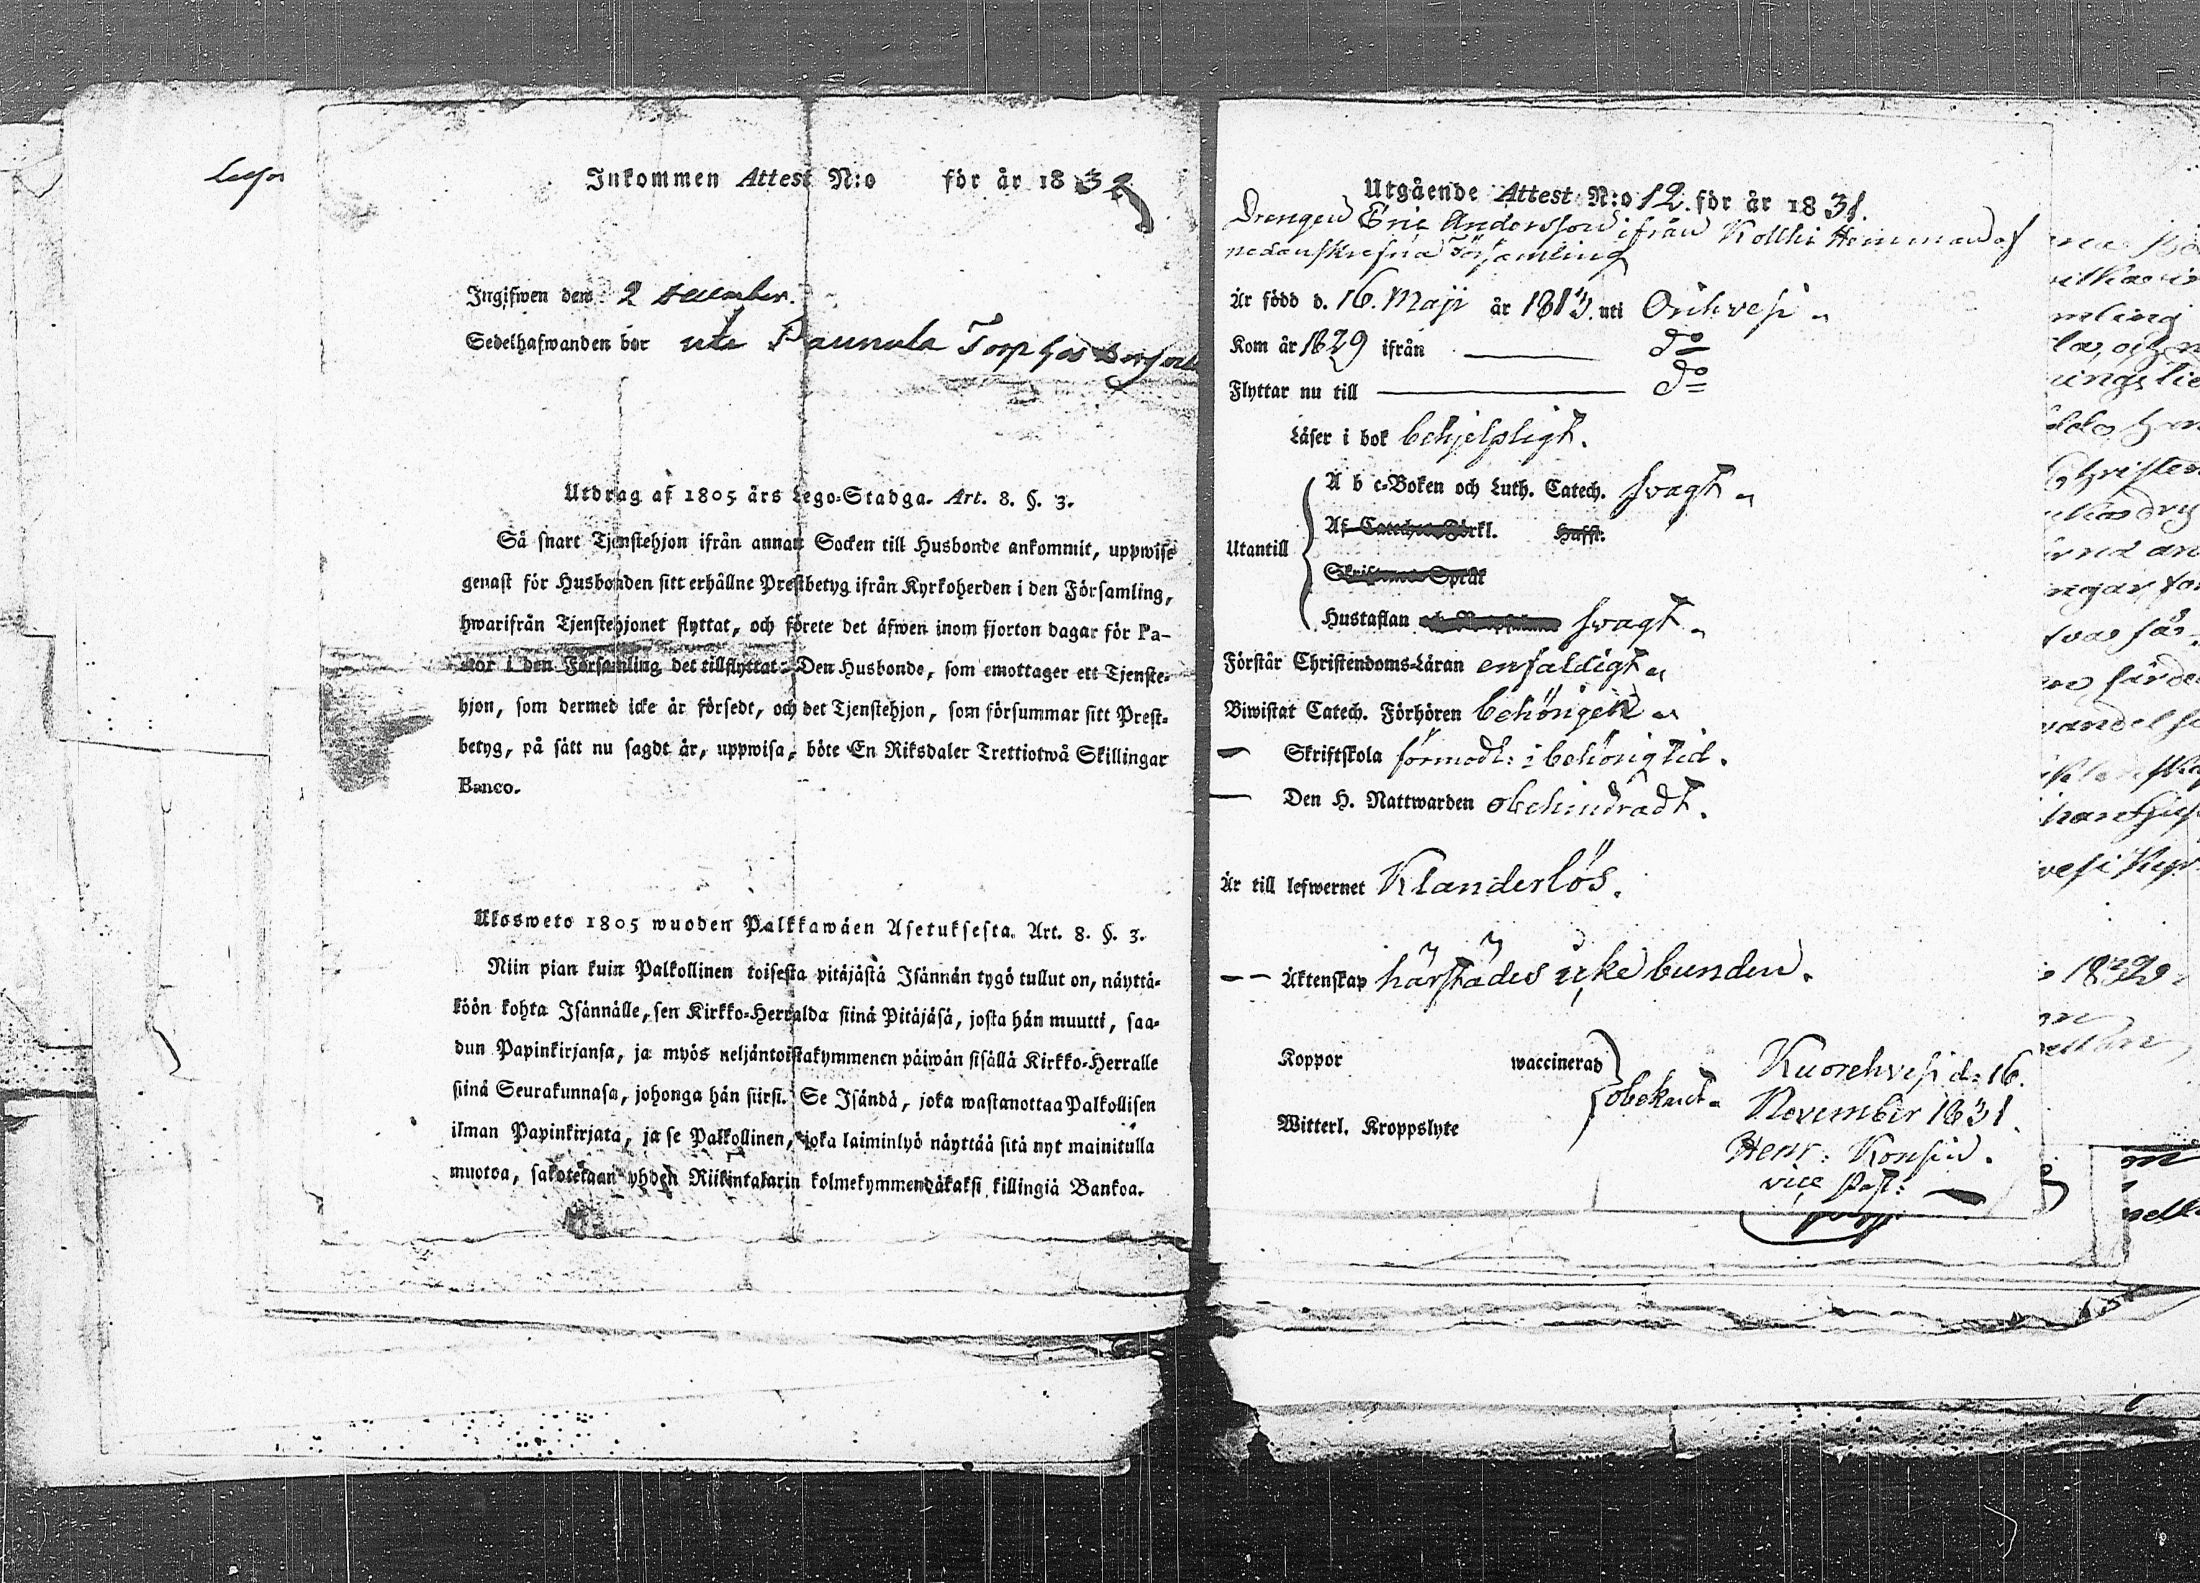 Inkommen Attest N:o för år 1832
Ingifwen den 2 December.
Sedelhafwanden bor uti Paunula Torp hos
Utdrag af 1805 års Lego-Stadga. Art. 8. §. 3.
Så snart Tjenstehjon ifrån annan Socken till Husbonde ankommit, uppwise
genast för Husbonden sitt erhållne Prestbetyg ifrån Kyrkoherden i den Församling,
hwarifrån Tjenstehjonet flyttat, och förete det äfwen inom fjorton dagar för Pa-
stor i den Församling det tillflyttat. Den Husbonde, som emottager ett Tjenste-
hjon, som dermed icke är försedt, och det Tjenstehjon, som försummar sitt Prest-
betyg, på sätt nu sagdt är, uppwisa, böte En Riksdaler Trettiotwå Skillingar
Banco.
Ulosweto 1805 wuoden Palkkawäen Asetuksesta. Art. 8. §. 3.
Niin pian kuin Palkollinen toisesta pitäjästä Isännän tygö tullut on, näyttä-
köön kohta Isännälle, sen Kirkko-Herralda siinä Pitäjäsä, josta hän muutti, saa-
dun Papinkirjansa, ja myös neljäntoistakymmenen päiwän sisällä Kirkko-Herralle
siinä Seurakunnasa, johonga hän siirsi. Se Isändä, joka wastanottaa Palkollisen
ilman Papinkirjata, ja se Palkollinen, joka laiminlyö näyttää sitä nyt mainitulla
muotoa, sakotetaan yhden Riikintalarin kolmekymmendäkaksi killingiä Bankoa.
Utgående Attest N:o 12. för år 1831.
Drengen Eric Andersson ifrån Kollki Hemman af
nedanskrefna Församling
Är född d. 16. Maji år 1813. uti Orihvesi
Kom år 1829 ifrån do
Flyttar nu till do
Läser i bok behjelpligt.
A b c-Boken och Luth. Catech. svagt
Af Cateches Förkl. Hufst.
Utantill
Skriftenes Språk
Hustaflan svagt
Förstår Christendoms-Läran enfaldigt
Biwistat Catech. Förhören behörigen
— Skriftskola förmodl: i behörig tid.
— Den H. Nattwarden obehindradt.
Är till lefwernet Klanderlös.
— — Äktenskap härstädes icke bunden.
Koppor waccinerad
obekant
Witterl. Kroppslyte
Kuorehvesi d: 16.
November 1831.
Henr: Konsin.
vice Past:
1832